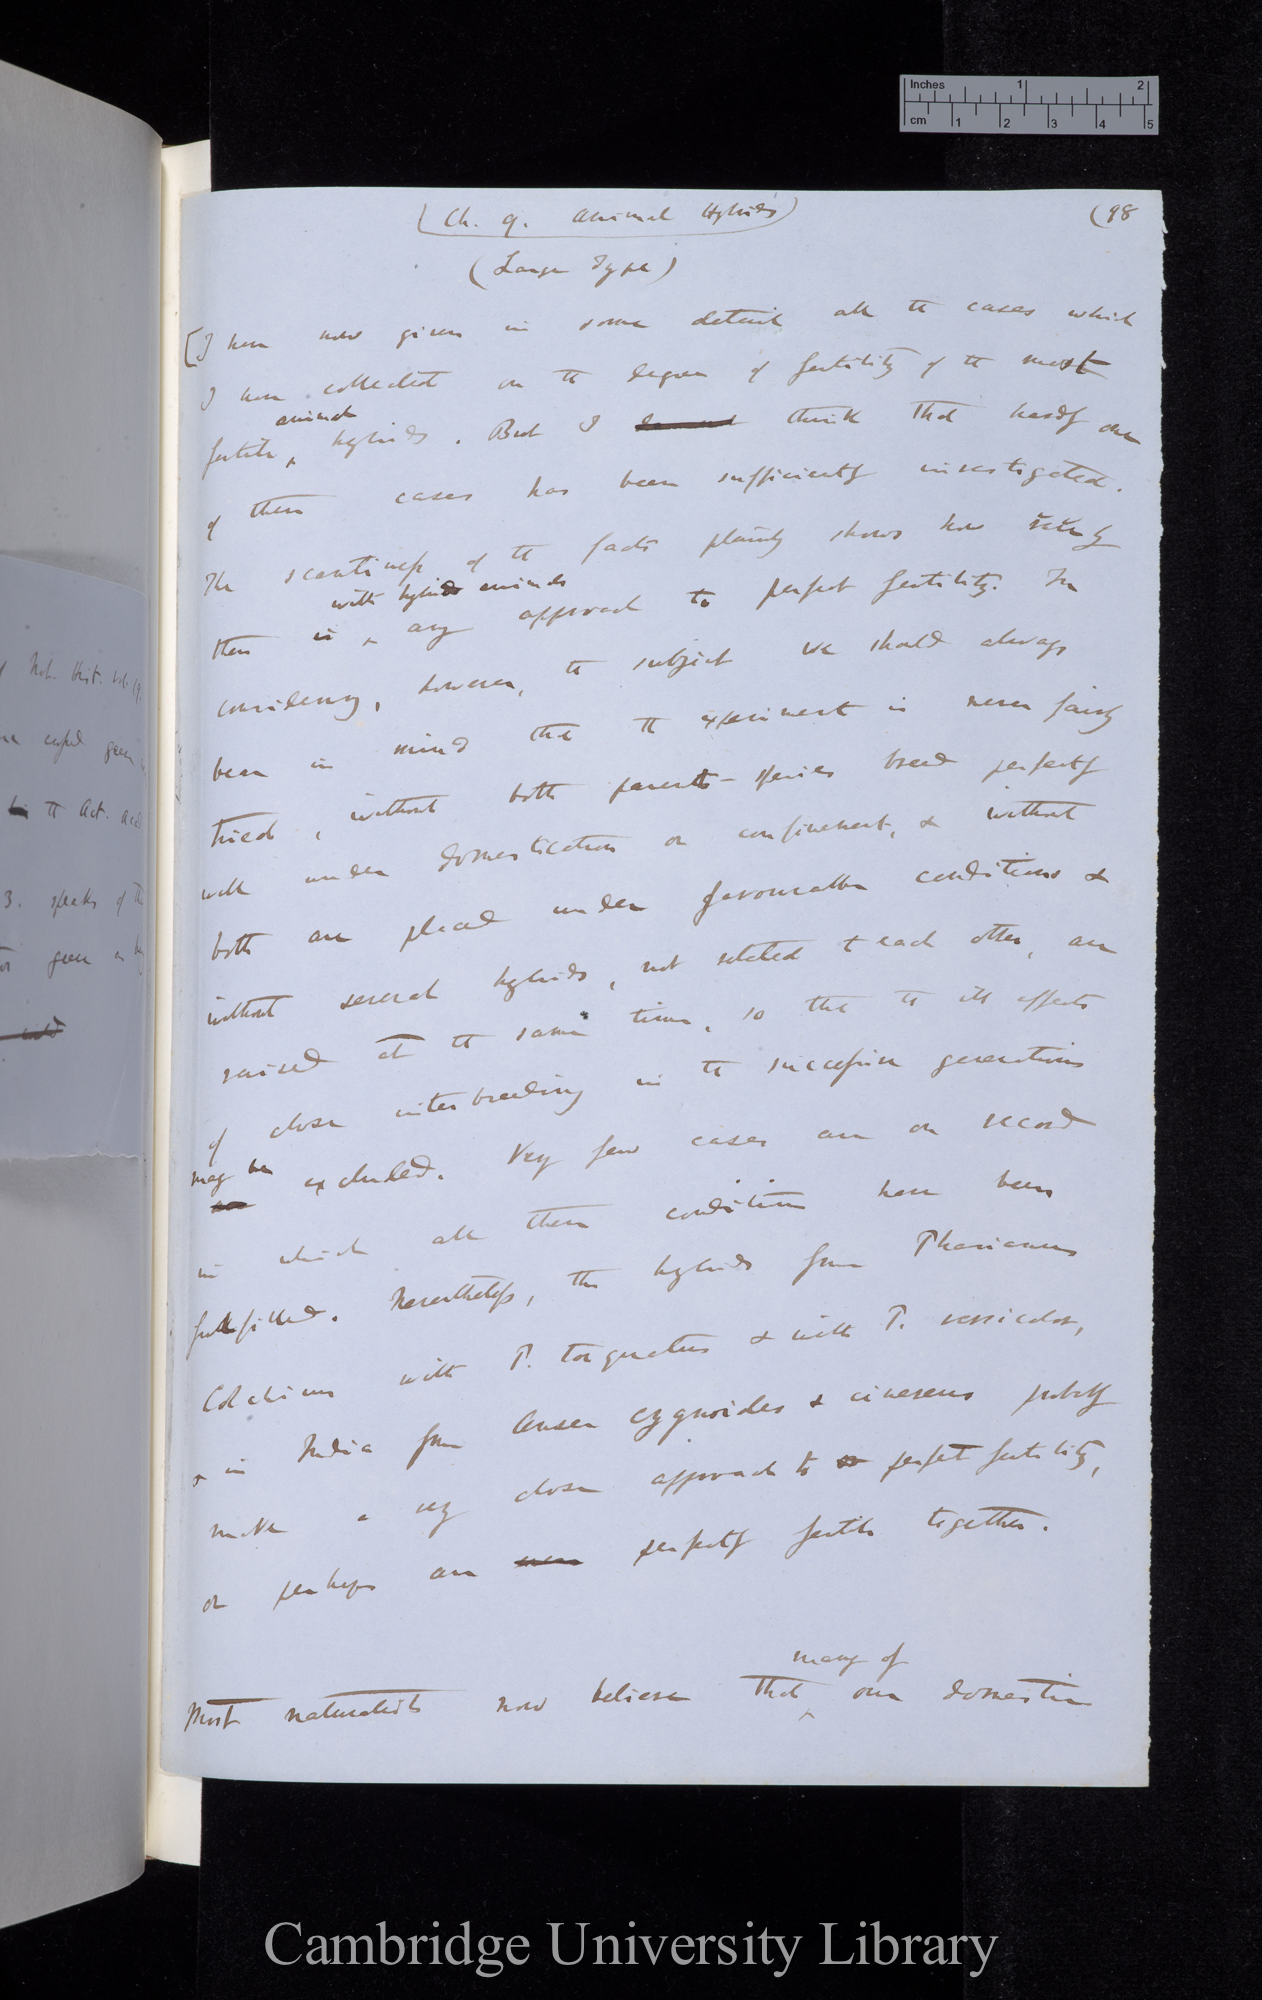 Inches 1 2
cm 1 2 3 4 5
(Ch. 9. Animal Hybrids)
(98
(Large Type)
[I have now given in some detail all the cases which
I have collected on the degree of fertility of the most
animal
fertile hybrids. But I think that hardly one
of these cases has been sufficiently investigated.
The scantiness of the facts plainly shows how
with hybrid animals
there is any approach to perfect fertility. In
considering, however, the subject we should always
bear in mind that the experiment is never fairly
tried, without both parent-species breed perfectly
well under domestication or confinement, & without
both are placed under favourable conditions &
without several hybrids, not related to each other, are
raised at the same time, so that the ill effects
of close interbreeding in the successive generations
may be
excluded. Very few cases are on record
in which all these conditions have been
fulfilled. Nevertheless, the hybrids from Phasianus
Colchicus with P. torquatus & with P. versicolor,
& in India from Anser cygnoides & cinereus probably
make a very close approach to perfect fertility,
or perhaps are perfectly fertile together.
many of
Most naturalists now believe that our domestic
Nat. Hist. vol. 19.
the Act. Acad
3. speaks of the
Cambridge University Library